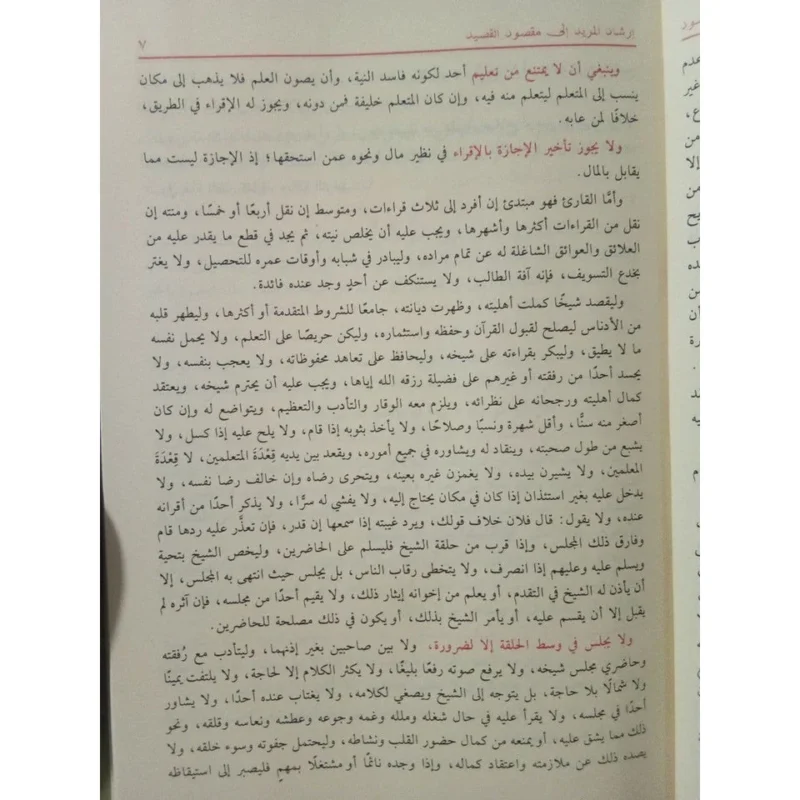 إرشاد المريد إلى مقصود القصيد
٧
وينبغي أن لا يمتنع من تعليم أحد لكونه فاسد النية، وأن يصون العلم فلا يذهب إلى مكان
ينسب إلى المتعلم ليتعلم منه فيه، وإن كان المتعلم خليفة فمن دونه، ويجوز له الإقراء في الطريق،
خلافًا لمن عابه.
ولا يجوز تأخير الإجازة بالإقراء في نظير مال ونحوه عمن استحقها؛ إذ الإجازة ليست مما
يقابل بالمال.
وأمَّا القارئ فهو مبتدئ إن أفرد إلى ثلاث قراءات، ومتوسط إن نقل أربعًا أو خمسًا، ومنته إن
نقل من القراءات أكثرها وأشهرها، ويجب عليه أن يخلص نيته، ثم يجد في قطع ما يقدر عليه من
العلائق والعوائق الشاغلة له عن تمام مراده، وليبادر في شبابه وأوقات عمره للتحصيل، ولا يغتر
بخدع التسويف، فإنه آفة الطالب، ولا يستنكف عن أحدٍ وجد عنده فائدة.
وليقصد شيخًا كملت أهليته، وظهرت ديانته، جامعًا للشروط المتقدمة أو أكثرها، وليطهر قلبه
من الأدناس ليصلح لقبول القرآن وحفظه واستثماره، وليكن حريصًا على التعلم، ولا يحمل نفسه
ما لا يطيق، وليبكر بقراءته على شيخه، وليحافظ على تعاهد محفوظاته، ولا يعجب بنفسه، ولا
يحسد أحدًا من رفقته أو غيرهم على فضيلة رزقه الله إياها، ويجب عليه أن يحترم شيخه، ويعتقد
كمال أهليته ورجحانه على نظرائه، ويلزم معه الوقار والتأدب والتعظيم، ويتواضع له وإن كان
أصغر منه سنًّا، وأقل شهرة ونسبًا وصلاحًا، ولا يأخذ بثوبه إذا قام، ولا يلح عليه إذا كسل، ولا
يشبع من طول صحبته، وينقاد له ويشاوره في جميع أموره، ويقعد بين يديه قِعْدَةَ المتعلمين، لا قِعْدَةَ
المعلمين، ولا يشيرن بيده، ولا يغمزن غيره بعينه، ويتحرى رضاه وإن خالف رضا نفسه، ولا
يدخل عليه بغير استئذان إذا كان في مكان يحتاج إليه، ولا يفشي له سرًّا، ولا يذكر أحدًا من أقرانه
عنده، ولا يقول: قال فلان خلاف قولك، ويرد غيبته إذا سمعها إن قدر، فإن تعذَّر عليه ردها قام
وفارق ذلك المجلس، وإذا قرب من حلقة الشيخ فليسلم على الحاضرين، وليخص الشيخ بتحية
ويسلم عليه وعليهم إذا انصرف، ولا يتخطى رقاب الناس، بل يجلس حيث انتهى به المجلس، إلا
أن يأذن له الشيخ في التقدم، أو يعلم من إخوانه إيثار ذلك، ولا يقيم أحدًا من مجلسه، فإن آثره لم
يقبل إلا أن يقسم عليه، أو يأمر الشيخ بذلك، أو يكون في ذلك مصلحة للحاضرين.
ولا يجلس في وسط الحلقة إلا لضرورة، ولا بين صاحبين بغير إذنهما، وليتأدب مع رُفقته
وحاضري مجلس شيخه، ولا يرفع صوته رفعًا بليغًا، ولا يكثر الكلام إلا لحاجة، ولا يلتفت يمينًا
ولا شمالًا بلا حاجة، بل يتوجه إلى الشيخ ويصغي لكلامه، ولا يغتاب عنده أحدًا، ولا يشاور
أحدًا في مجلسه، ولا يقرأ عليه في حال شغله وملله وغمه وجوعه وعطشه ونعاسه وقلقه، ونحو
ذلك مما يشق عليه، أو يمنعه من كمال حضور القلب ونشاطه، وليحتمل جفوته وسوء خلقه، ولا
يصده ذلك عن ملازمته واعتقاد كماله، وإذا وجده نائمًا أو مشتغلًا بمهمٍ فليصبر إلى استيقاظه